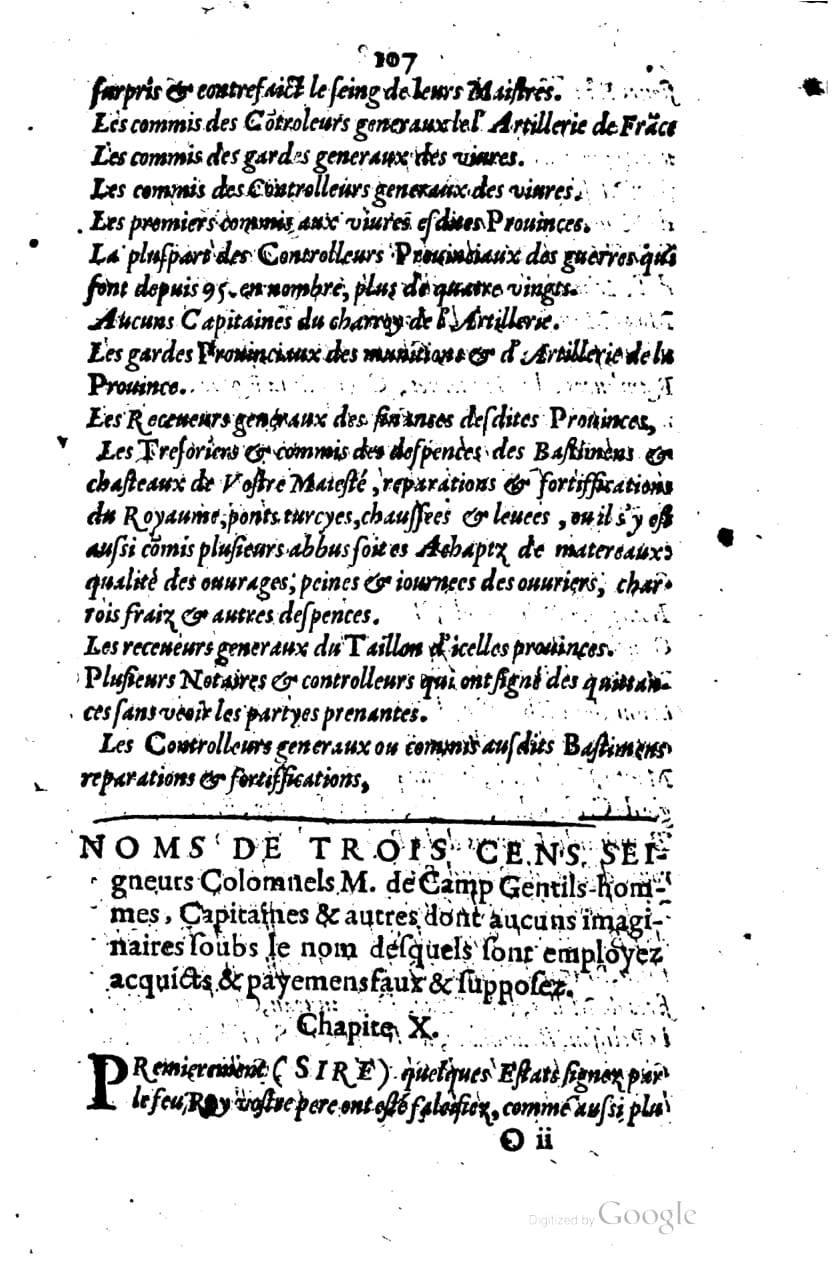 107
ſurpris & contrefaict le ſeing de leurs Maiſtres.
Les commis des Cõtroleurs generaux de l'Artillerie de Frãce
Les commis des gardes generaux des viures.
Les commis des Controlleurs generaux des viures.
Les premiers commis aux viures eſdites Prouinces.
La pluſpart des Controlleurs Prouinciaux des guerres qui
ſont depuis 95. en nombre, plus de quatre vingts.
Aucuns Capitaines du charroy de l'Artillerie.
Les gardes Prouinciaux des munitions & d'Artillerie de la
Prouince.
Les Receueurs generaux des finanses deſdites Prouinces,
Les Treſoriers & commis des deſpences des Baſtimens &
chaſteaux de Voſtre Maieſté, reparations & fortiffications
du Royaume, ponts, turcyes, chauſſees & leuees, ou il s'y eſt
auſsi cõmis pluſieurs abbus ſoit es Achaptz de matereaux,
qualité des ouurages, peines & iournees des ouuriers, char-
rois fraiz & autres deſpences.
Les receueurs generaux du Taillon d'icelles prouinces.
Pluſieurs Notaires & controlleurs qui ont ſigné des quittan-
ces ſans veoir les partyes prenantes.
Les Controlleurs generaux ou commis auſdits Baſtimens
reparations & fortiffications,
NOMS DE TROIS CENS SEI-
gneurs Colomnels M. de Camp Gentils-hom-
mes, Capitaines & autres dont aucuns imagi-
naires ſoubs le nom deſquels ſont employez
acquicts & payemens faux & ſuppoſez.
Chapitre X.
PRemierement (SIRE) quelques Eſtats ſignez par
le feu Roy voſtre pere ont eſté falſifiez, comme auſsi plu
O ii
Digitized by Google